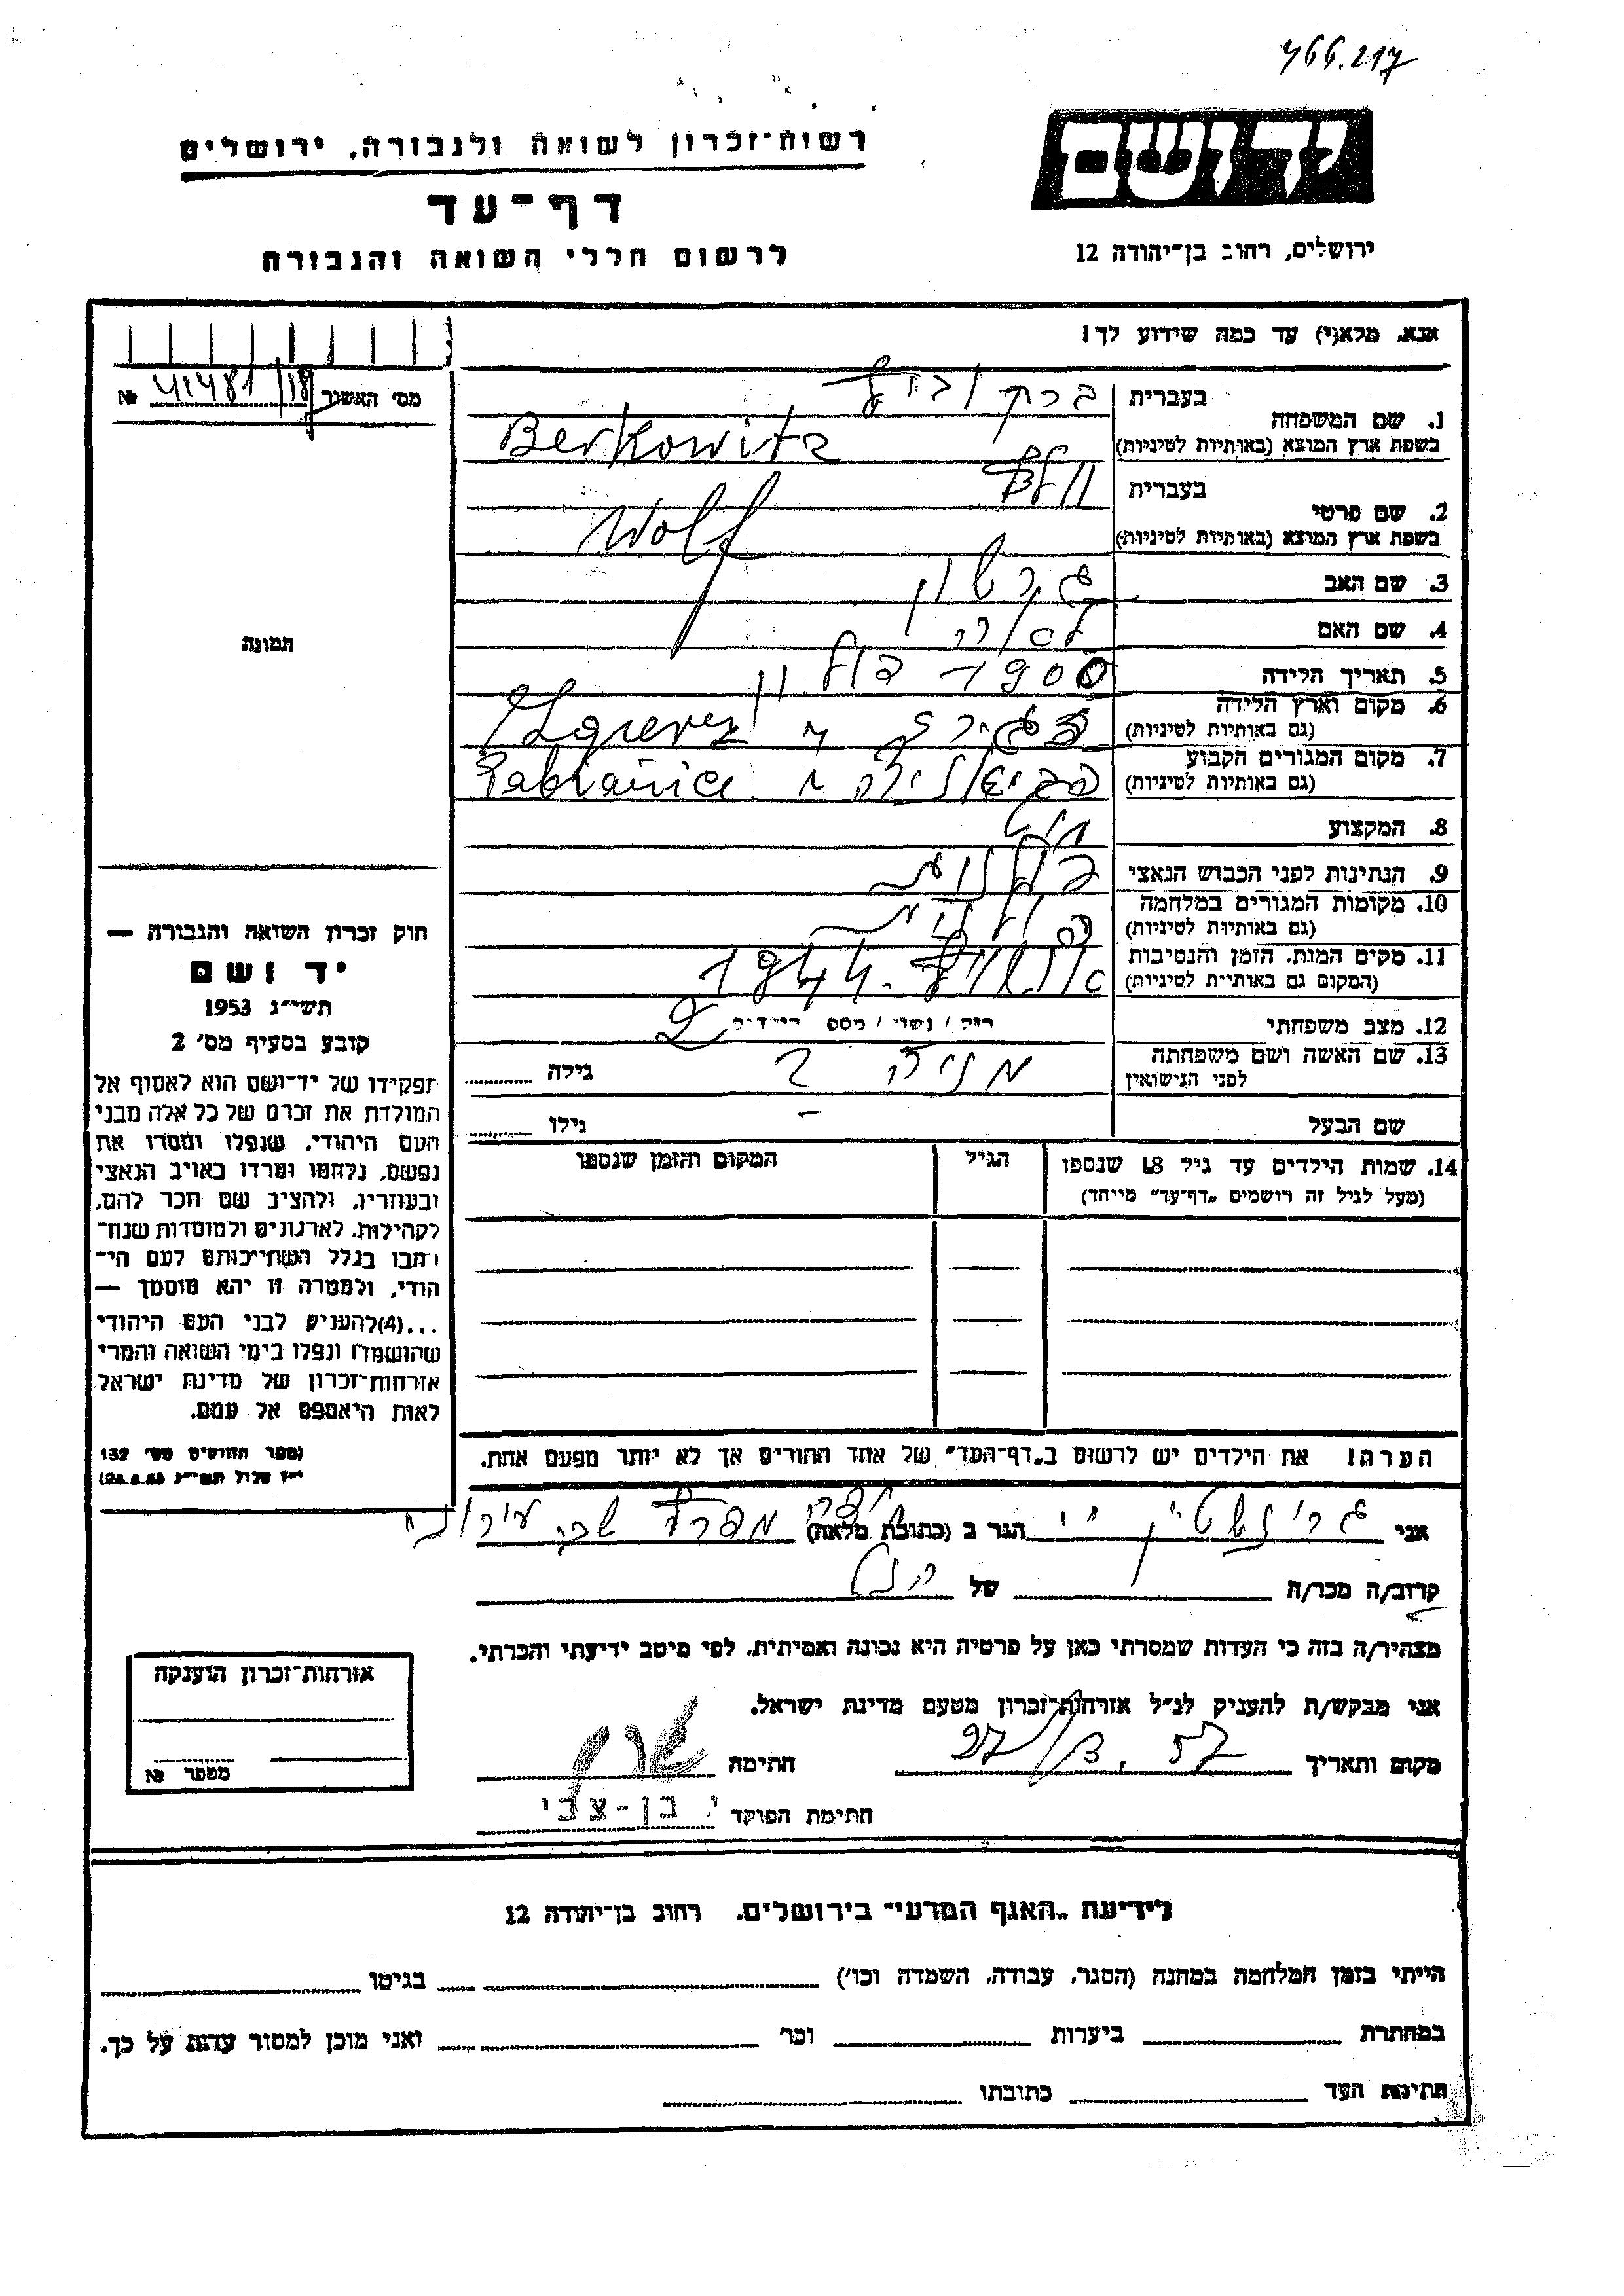 466.217
רשות־זכרון לשואה ולגבורה, ירושלים
דף־עד
לרשום חללי השואה והגבורה
יד ושם
ירושלים, רחוב בן־יהודה 12
אנא, מלא(י) עד כמה שידוע לך!
מס' האשור 41481/18 №
1. שם המשפחה בעברית ברקוביץ
בשפת ארץ המוצא (באותיות לטיניות) Berkowitz
2. שם פרטי בעברית וולף
בשפת ארץ המוצא (באותיות לטיניות) Wolf
3. שם האב גרשון
4. שם האם
5. תאריך הלידה 1900 פולין
6. מקום וארץ הלידה
(גם באותיות לטיניות)
7. מקום המגורים הקבוע
(גם באותיות לטיניות) Pabianice
8. המקצוע
9. הנתינות לפני הכבוש הנאצי פולנית
10. מקומות המגורים במלחמה
(גם באותיות לטיניות)
11. מקום המות, הזמן והנסיבות
(המקום גם באותיות לטיניות) אושוויץ 1944
12. מצב משפחתי רוק / נשוי / מספר הילדים 2
13. שם האשה ושם משפחתה
לפני הנישואין מניה ב גילה
שם הבעל - גילו
14. שמות הילדים עד גיל 18 שנספו הגיל המקום והזמן שנספו
(מעל לגיל זה רושמים „דף־עד" מייחד)
הערה! את הילדים יש לרשום ב„דף־העד" של אחד ההורים אך לא יותר מפעם אחת.
תמונה
חוק זכרון השואה והגבורה —
יד ושם
תשי"ג 1953
קובע בסעיף מס' 2
תפקידו של יד־ושם הוא לאסוף אל
המולדת את זכרם של כל אלה מבני
העם היהודי, שנפלו ומסרו את
נפשם, נלחמו ומרדו באויב הנאצי
ובעוזריו, ולהציב שם וזכר להם,
לקהילות, לארגונים ולמוסדות שנח־
רבו בגלל השתייכותם לעם הי־
הודי, ולמטרה זו יהא מוסמך —
...(4)להעניק לבני העם היהודי
שהושמדו ונפלו בימי השואה והמרי
אזרחות־זכרון של מדינת ישראל
לאות היאספם אל עמם.
(ספר החוקים מס' 132
י"ז אלול תשי"ג 28.8.53)
אני גרינשטיין הגר ב (כתובת מלאה)
קרוב/ה מכר/ה של הנ"ל
מצהיר/ה בזה כי העדות שמסרתי כאן על פרטיה היא נכונה ואמיתית, לפי מיטב ידיעתי והכרתי.
אני מבקש/ת להעניק לנ"ל אזרחות־זכרון מטעם מדינת ישראל.
מקום ותאריך חתימה
חתימת הפוקד י. בן-צבי
אזרחות־זכרון הוענקה
מספר №
לידיעת „האגף המדעי" בירושלים. רחוב בן־יהודה 12
הייתי בזמן המלחמה במחנה (הסגר, עבודה, השמדה וכו') בגיטו
במחתרת ביערות וכו' ואני מוכן למסור עדות על כך.
חתימת העד כתובתו